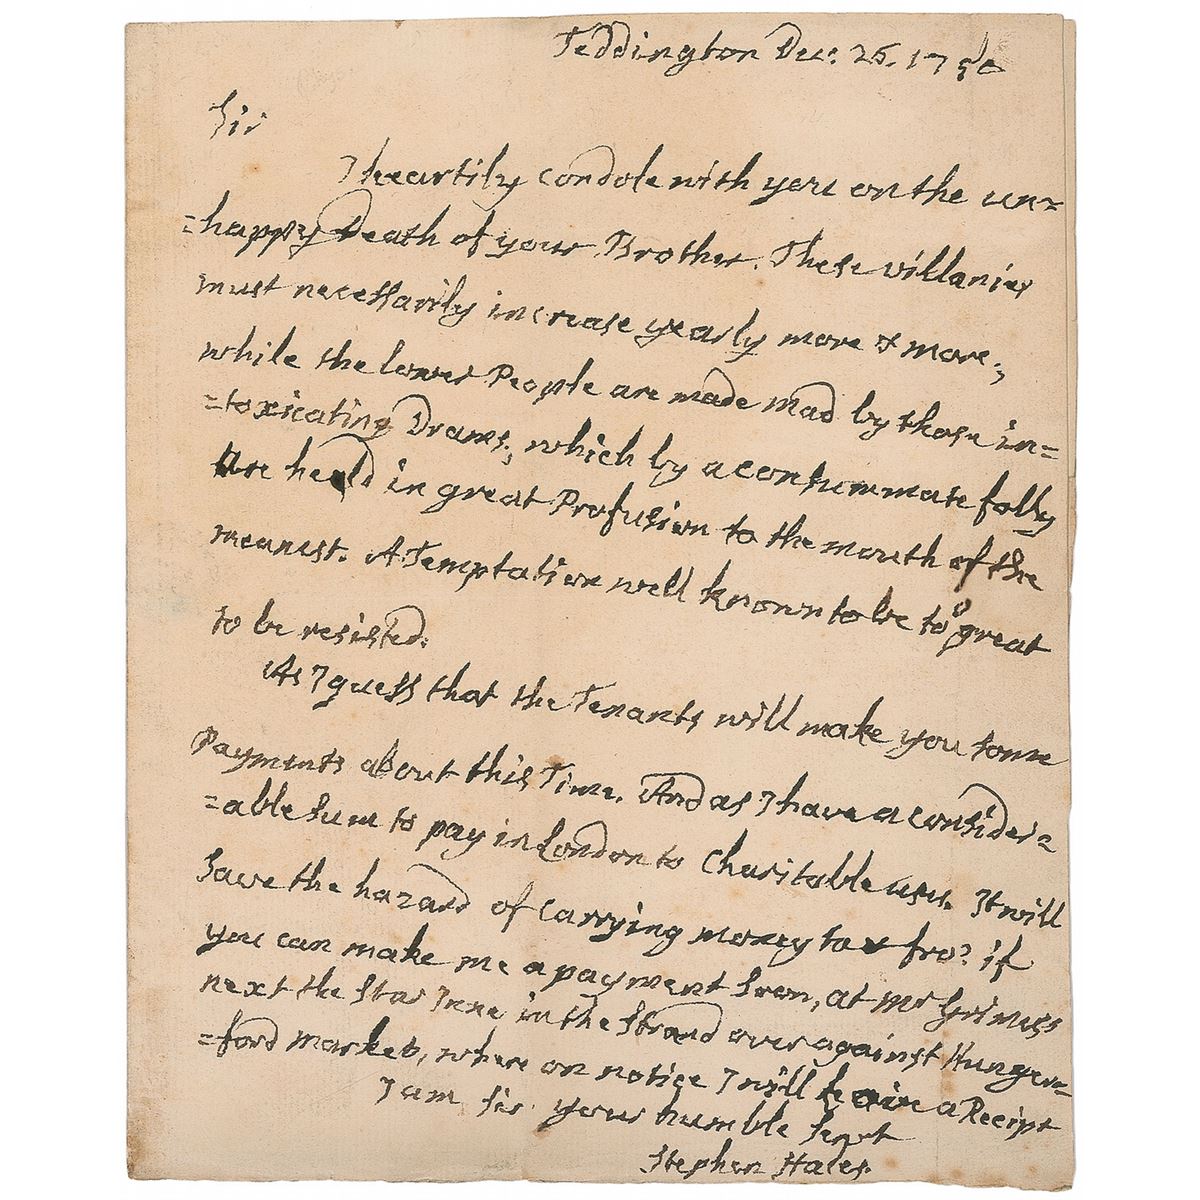 Teddington Dec: 25. 1750
Sir
I heartily condole with you on the un=
=happy Death of your Brother. These villanies
must necessarily increase yearly more & more;
while the lower People are made mad by those in=
=toxicating Drams; which by a consummate folly
Are held in great Profusion to the mouth of the
meanest. A Temptation well known to be too great
to be resisted.
As I guess that the Tenants will make you some
Payments about this Time. And as I have a consider=
=able sum to pay in London to Charitable uses. It will
Save the hazard of carrying money to & fro? if
you can make me a payment soon, at Mr Grimess
next the Star Inne in the Strand over against Hunger=
=ford market, where on notice I will leave a Receipt
I am Sir your humble Servt
Stephen Hales.